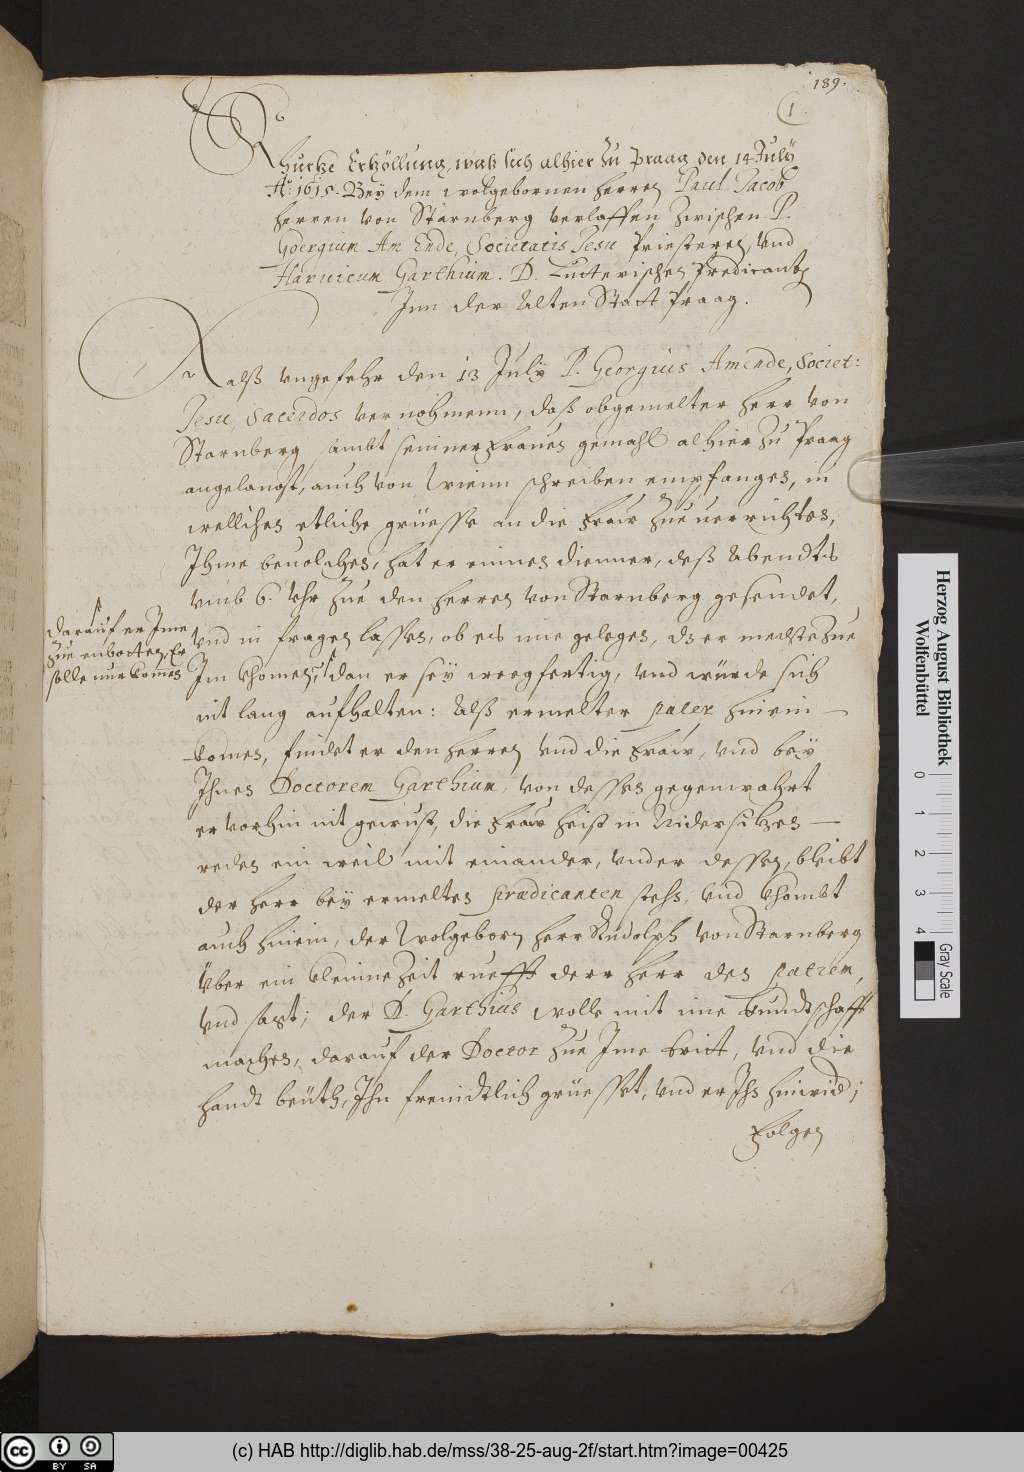 189.
1.
Khurtze Erköllung, waß sich alhier zu Praag den 14 July
Aº: 1615. Bey dem wolgebornen herren Paul Jacob
herren von Starnberg verlaffen zwischen P.
Goergium Am Ende, Societatis Jesu Priesteren, Vnd
Haruicum Garthium. D. Lutterischen Predicanten
Inn der Alten Statt Praag.
Alß vngefehr den 13 July P. Georgius Amende, Societ:
Jesu, Sacerdos vernohmenn, daß obgemelter herr von
Starnberg sambt seiner Frauen gemahl alhier zu Praag
angelangt, auch von Wienn schreiben empfangen, in
wellichen etliche grüesse an die Fraw zue uerrichten,
Ihme beuolchen, hat er einnen dienner, deß Abendts
vmb 6. Vhr zue den herren von Starnberg gesendet,
Vnd in fragen lassen, ob eß ime gelegen, dz er mechte zue
darauf er Ime
zue enbotten, Er
solle nur komen
Im khomen, dan er sey weegfertig, vnd würde sich
nit lang aufhalten: Alß ermelter pater hinein
komen, findet er den herren Vnd die Fraw, Vnd bey
Ihnen Doctorem Garthium, von dessen gegenwahrt
er vorhin nit gewust, die Fraw heist in Nidersitzen
reden ein weil mit einander, vnder dessen, bleibt
der herr bey ermelten prædicanten stehn, Vnd khombt
auch hinein, der Wolgeborn herr Rudolph von Starnberg
Vber ein kleinne Zeit rüefft der herr den patrem,
Vnd sagt; der D. Garthius wolle mit ime kundtschafft
machen, darauf der Doctor zue Ime tritt, Vnd die
handt beüth, Ihn freündtlich grüesset, vnd er Ihn hinwid;
Folgen
Herzog August Bibliothek
Wolfenbüttel
0 1 2 3 4
Gray Scale
cc BY SA
(c) HAB http://diglib.hab.de/mss/38-25-aug-2f/start.htm?image=00425